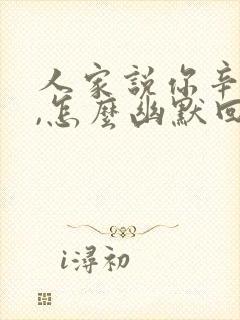 人家説你辛
,怎麼幽默回
i潯初